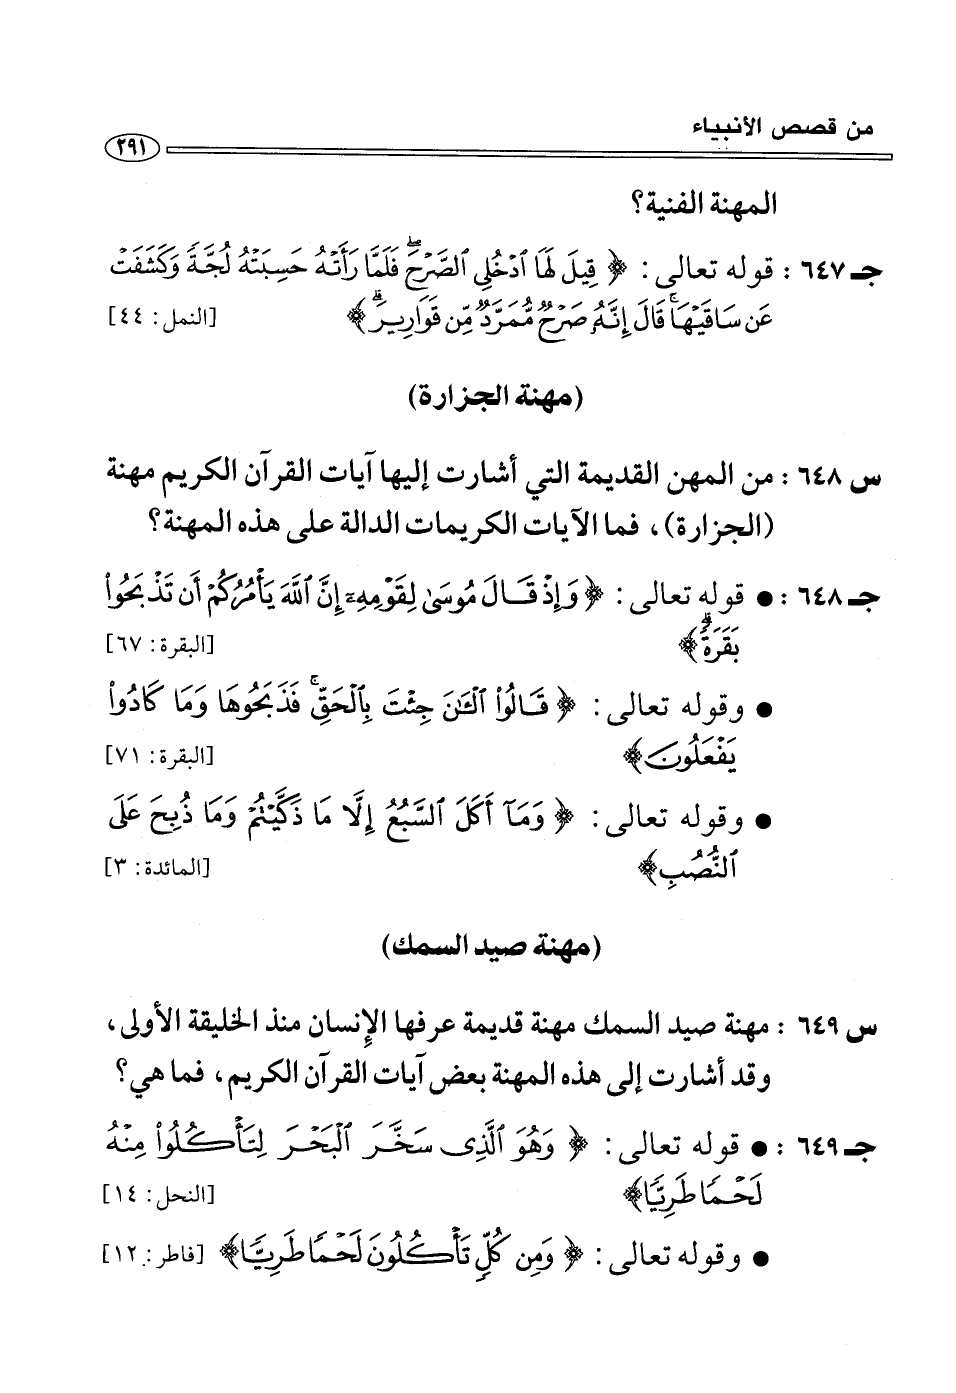 من قصص الأنبياء
٢٩١
المهنة الفنية؟
جـ ٦٤٧ : قوله تعالى: ﴿ قِيلَ لَهَا ٱدْخُلِى ٱلصَّرْحَ ۖ فَلَمَّا رَأَتْهُ حَسِبَتْهُ لُجَّةً وَكَشَفَتْ
عَن سَاقَيْهَا ۚ قَالَ إِنَّهُۥ صَرْحٌ مُّمَرَّدٌ مِّن قَوَارِيرَ ۗ ﴾ [النمل: ٤٤]
(مهنة الجزارة)
س ٦٤٨ : من المهن القديمة التي أشارت إليها آيات القرآن الكريم مهنة
(الجزارة)، فما الآيات الكريمات الدالة على هذه المهنة؟
جـ ٦٤٨ : ● قوله تعالى: ﴿ وَإِذْ قَالَ مُوسَىٰ لِقَوْمِهِۦٓ إِنَّ ٱللَّهَ يَأْمُرُكُمْ أَن تَذْبَحُوا۟
بَقَرَةً ۖ ﴾ [البقرة: ٦٧]
● وقوله تعالى: ﴿ قَالُوا۟ ٱلْـَٰٔنَ جِئْتَ بِٱلْحَقِّ ۚ فَذَبَحُوهَا وَمَا كَادُوا۟
يَفْعَلُونَ ﴾ [البقرة: ٧١]
● وقوله تعالى: ﴿ وَمَآ أَكَلَ ٱلسَّبُعُ إِلَّا مَا ذَكَّيْتُمْ وَمَا ذُبِحَ عَلَى
ٱلنُّصُبِ ﴾ [المائدة: ٣]
(مهنة صيد السمك)
س ٦٤٩ : مهنة صيد السمك مهنة قديمة عرفها الإنسان منذ الخليقة الأولى،
وقد أشارت إلى هذه المهنة بعض آيات القرآن الكريم، فما هي؟
جـ ٦٤٩ : ● قوله تعالى: ﴿ وَهُوَ ٱلَّذِى سَخَّرَ ٱلْبَحْرَ لِتَأْكُلُوا۟ مِنْهُ
لَحْمًا طَرِيًّا ﴾ [النحل: ١٤]
● وقوله تعالى: ﴿ وَمِن كُلٍّ تَأْكُلُونَ لَحْمًا طَرِيًّا ﴾ [فاطر: ١٢]